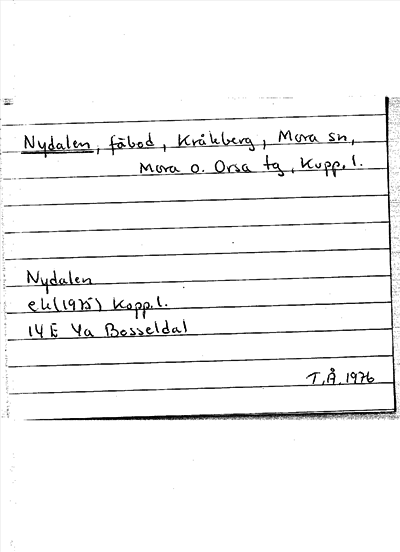 Nydalen, fäbod, Kråkberg, Mora sn,
Mora o. Orsa tg, Kopp. l.
Nydalen
ek (1975) Kopp. l.
14 E 4a Besseldal
T.Å. 1976